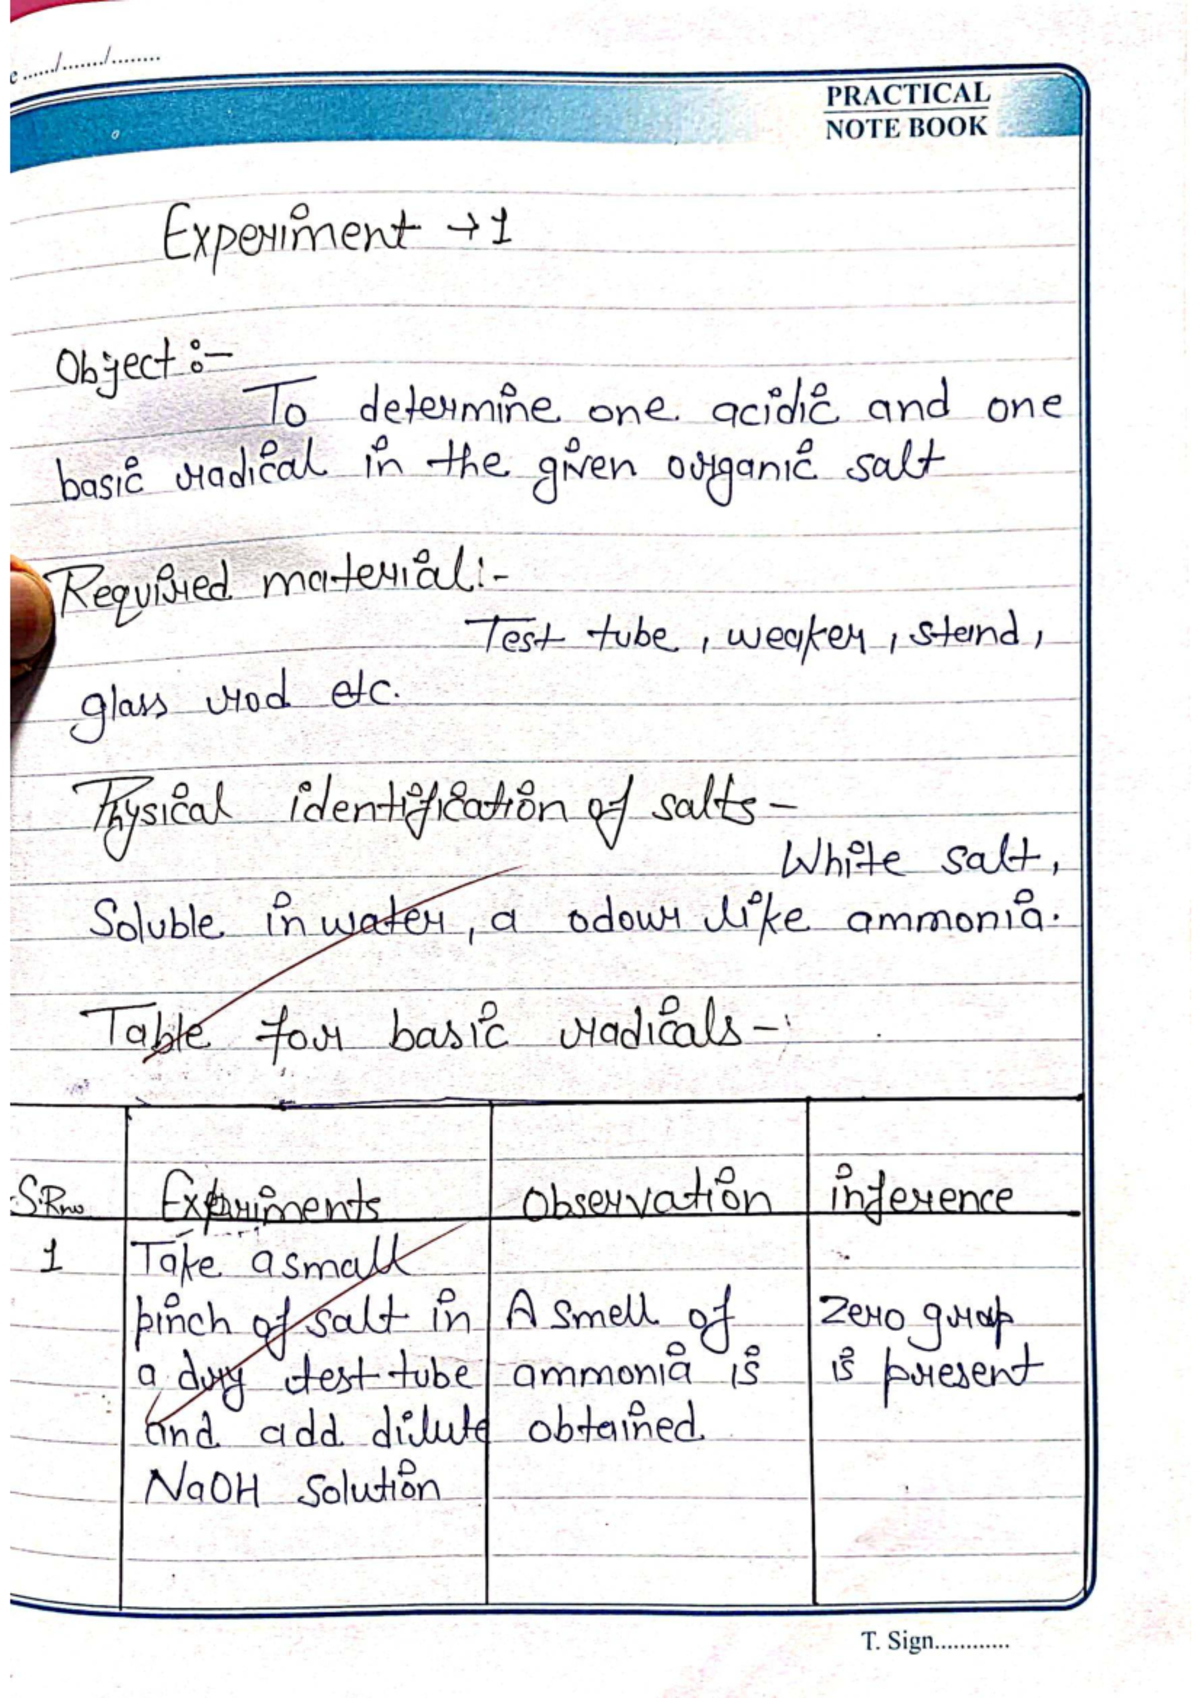 e ....../......./........
PRACTICAL
NOTE BOOK
Experiment → 1
Object :-
To determine one acidic and one
basic radical in the given organic salt
Required material:-
Test tube, weaker, stand,
glass rod etc.
Physical identification of salts -
White salt,
Soluble in water, a odour like ammonia.
Table for basic radicals -
S.Rno Experiments Observation inference
1 Take a small
pinch of salt in A smell of Zero grap
a dry test tube ammonia is is present
and add dilute obtained
NaOH solution
T. Sign............